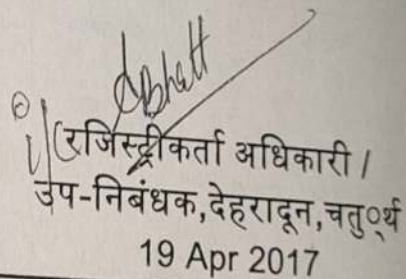 ABhatt
रजिस्ट्रीकर्ता अधिकारी /
उप-निबंधक,देहरादून,चतुर्थ
19 Apr 2017